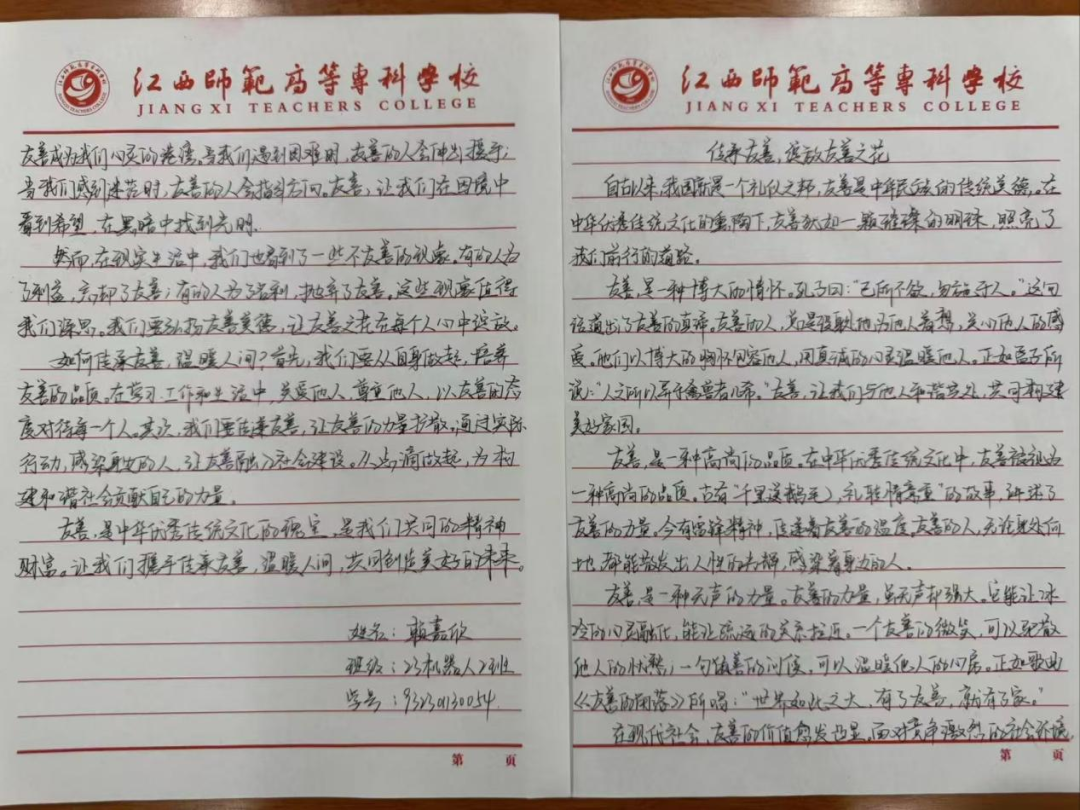 江西師範高等專科學校
JIANGXI TEACHERS COLLEGE
传承友善，绽放友善之花
自古以来，我国就是一个礼仪之邦，友善是中华民族的传统美德。在
中华优秀传统文化的熏陶下，友善犹如一颗璀璨的明珠，照亮了
我们前行的道路。
友善，是一种博大的情怀。孔子曰：“己所不欲，勿施于人。”这句
话道出了友善的真谛。友善的人，总是设身处地为他人着想，关心他人的感
受。他们以博大的胸怀包容他人，用真诚的心灵温暖他人。正如孟子所
说：“人之所以异于禽兽者几希。”友善，让我们与他人和谐共处，共同构建
美好家园。
友善，是一种高尚的品质。在中华优秀传统文化中，友善被视为
一种高尚的品质。古有“千里送鹅毛，礼轻情意重”的故事，讲述了
友善的力量。今有雷锋精神，传递着友善的温度。友善的人，无论身处何
地，都能散发出人性的光辉，感染着身边的人。
友善，是一种无声的力量。友善的力量，虽无声却强大。它能让冰
冷的心灵融化，能让疏远的关系拉近。一个友善的微笑，可以驱散
他人的忧愁；一句友善的问候，可以温暖他人的心房。正如歌曲
《友善的角落》所唱：“世界如此之大，有了友善，就有了家。”
在现代社会，友善的价值愈发凸显。面对竞争激烈的社会环境，
第 页
江西師範高等專科學校
JIANGXI TEACHERS COLLEGE
友善成为我们心灵的港湾。当我们遇到困难时，友善的人会伸出援手；
当我们感到迷茫时，友善的人会指引方向。友善，让我们在困境中
看到希望，在黑暗中找到光明。
然而，在现实生活中，我们也看到了一些不友善的现象。有的人为
了利益，忘却了友善；有的人为了名利，抛弃了友善。这些现象值得
我们深思。我们要弘扬友善美德，让友善之花在每个人心中绽放。
如何传承友善，温暖人间？首先，我们要从自身做起，培养
友善的品质。在学习、工作和生活中，关爱他人，尊重他人，以友善的态
度对待每一个人。其次，我们要传递友善，让友善的力量扩散。通过实际
行动，感染身边的人，让友善融入社会建设。从点滴做起，为构
建和谐社会贡献自己的力量。
友善，是中华优秀传统文化的瑰宝，是我们共同的精神
财富。让我们携手传承友善，温暖人间，共同创造美好的未来。
姓名：赖嘉欣
班级：23机器人2班
学号：93230130054
第 页